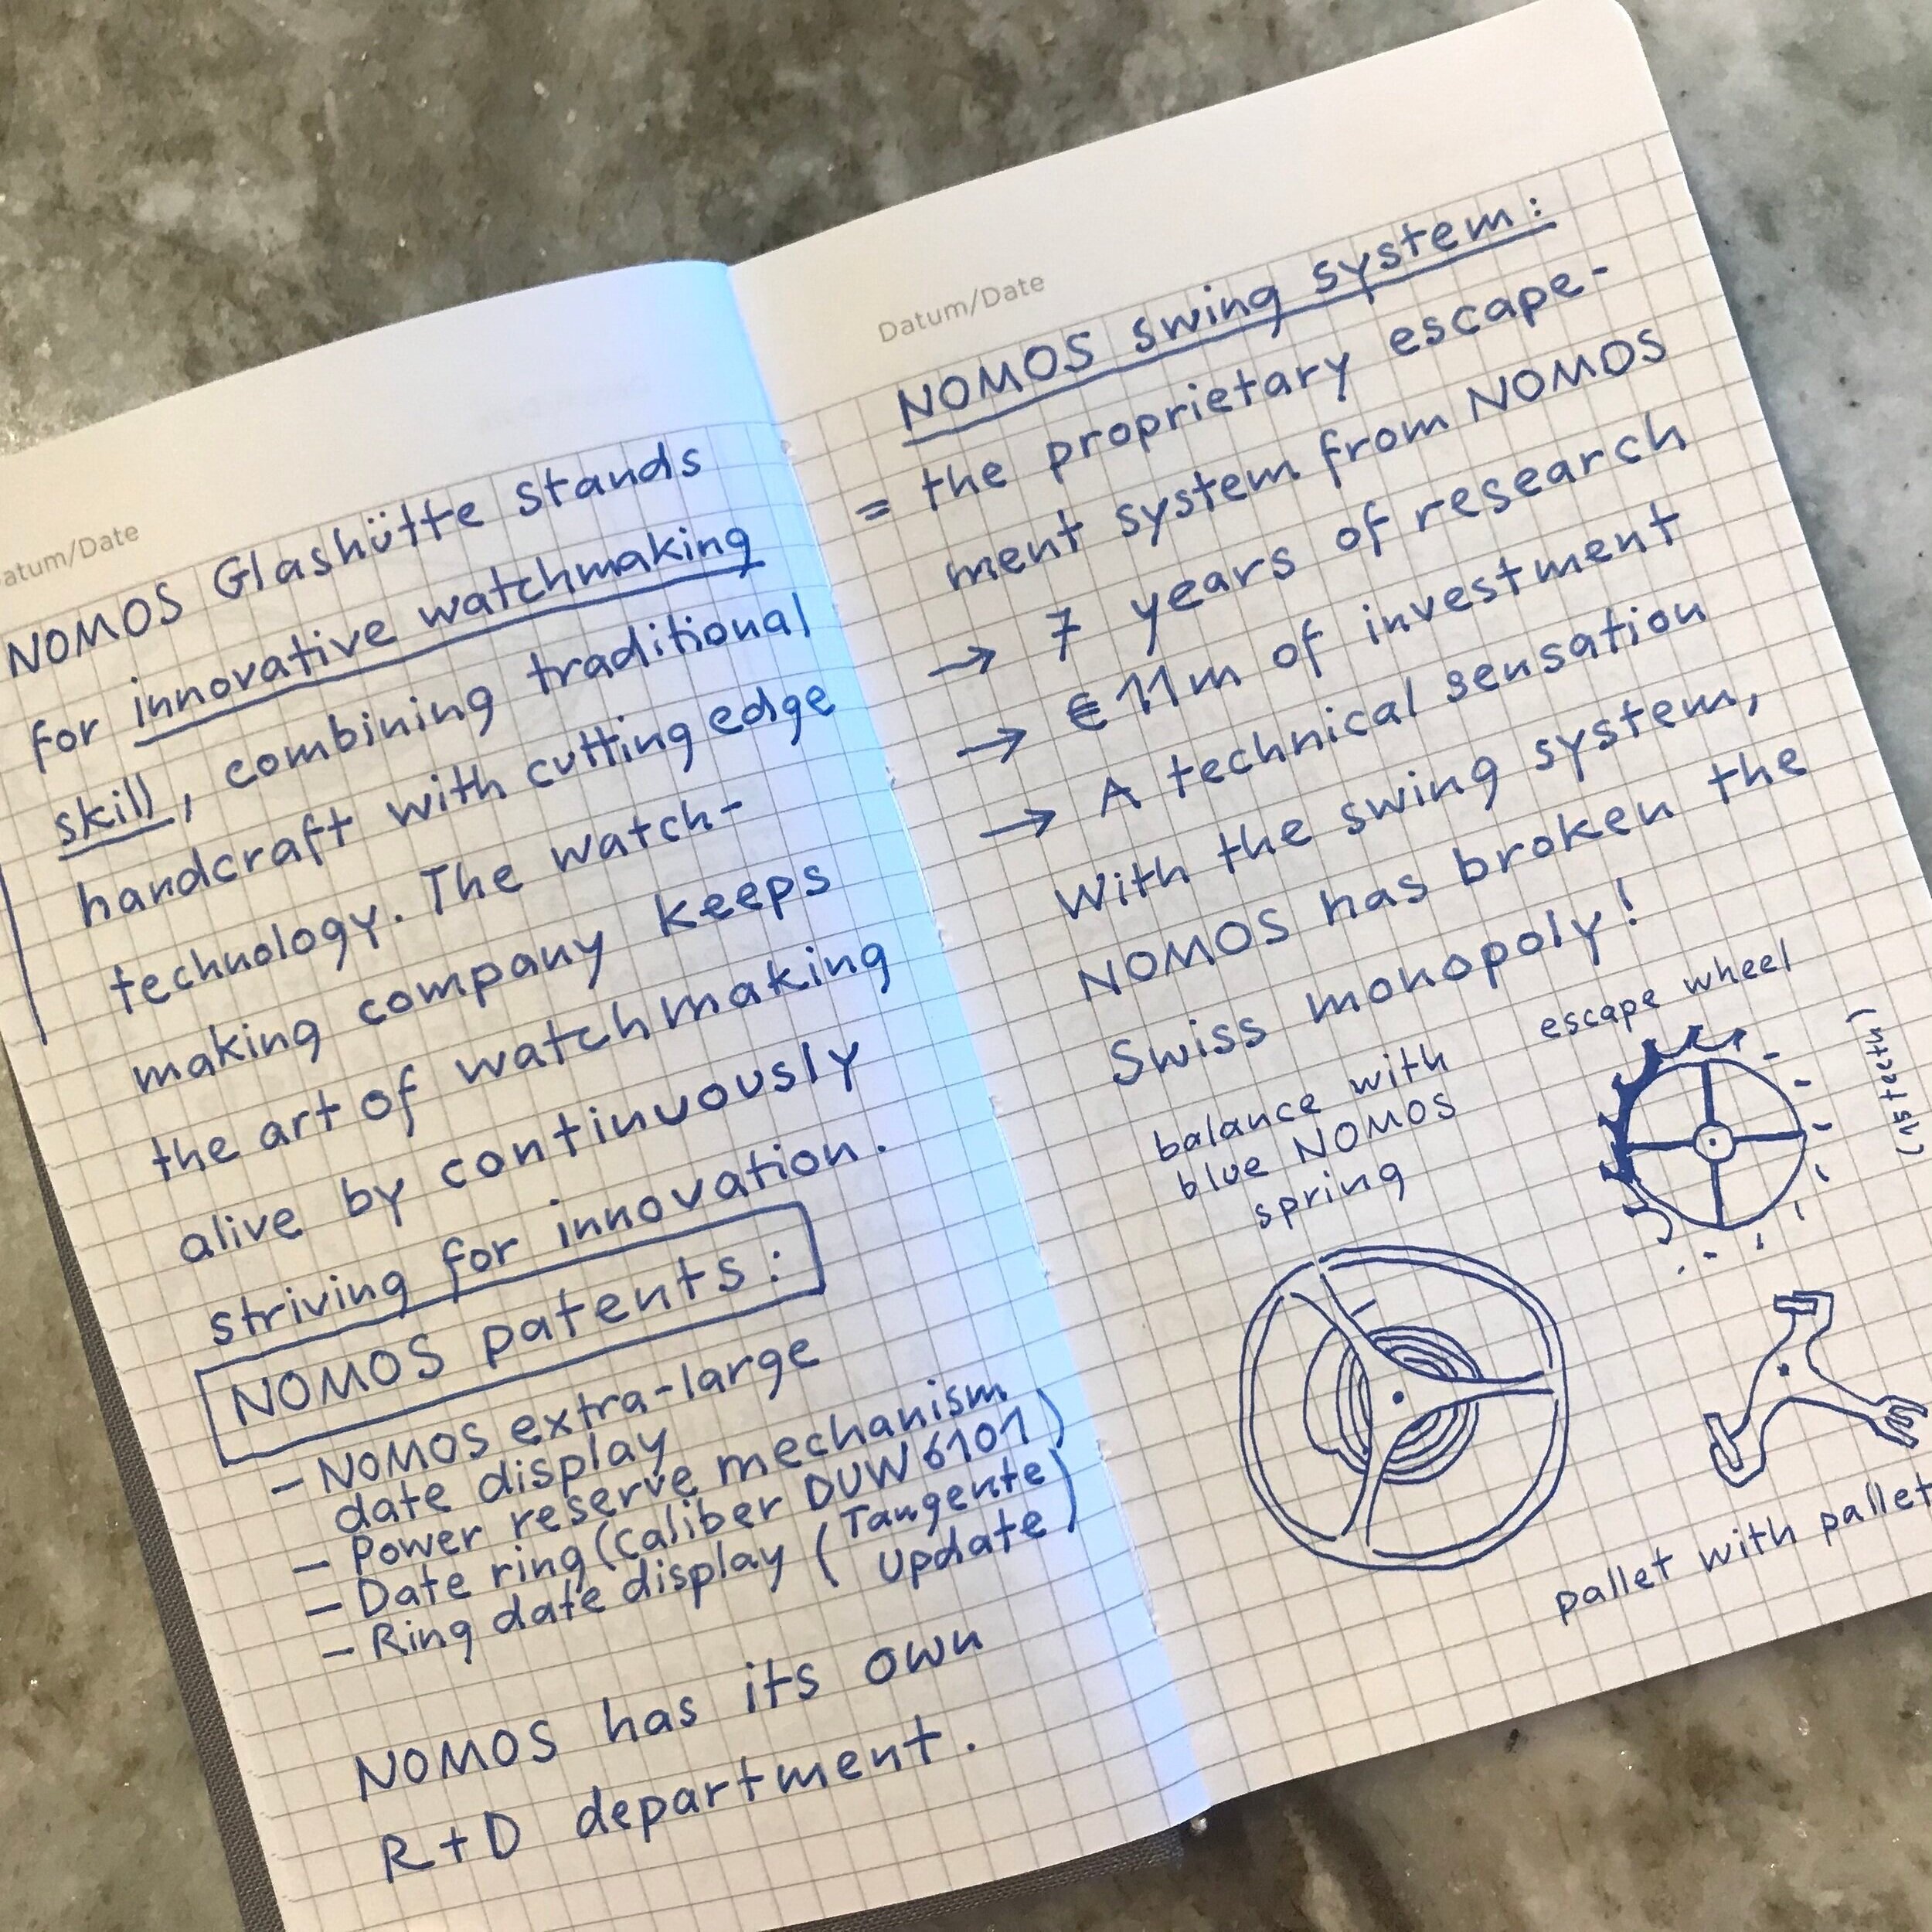 atum/Date
NOMOS Glashütte stands
for innovative watchmaking
skill, combining traditional
handcraft with cutting edge
technology. The watch-
making company keeps
the art of watchmaking
alive by continuously
striving for innovation.
NOMOS patents:
– NOMOS extra-large
date display
– Power reserve mechanism
– Date ring (Caliber DUW 6101)
– Ring date display (Tangente
Update)
NOMOS has its own
R+D department.
Datum/Date
NOMOS swing system:
= the proprietary escape-
ment system from NOMOS
→ 7 years of research
→ €11m of investment
→ A technical sensation
With the swing system,
NOMOS has broken the
Swiss monopoly!
escape wheel
(15 teeth)
balance with
blue NOMOS
spring
pallet with pallet